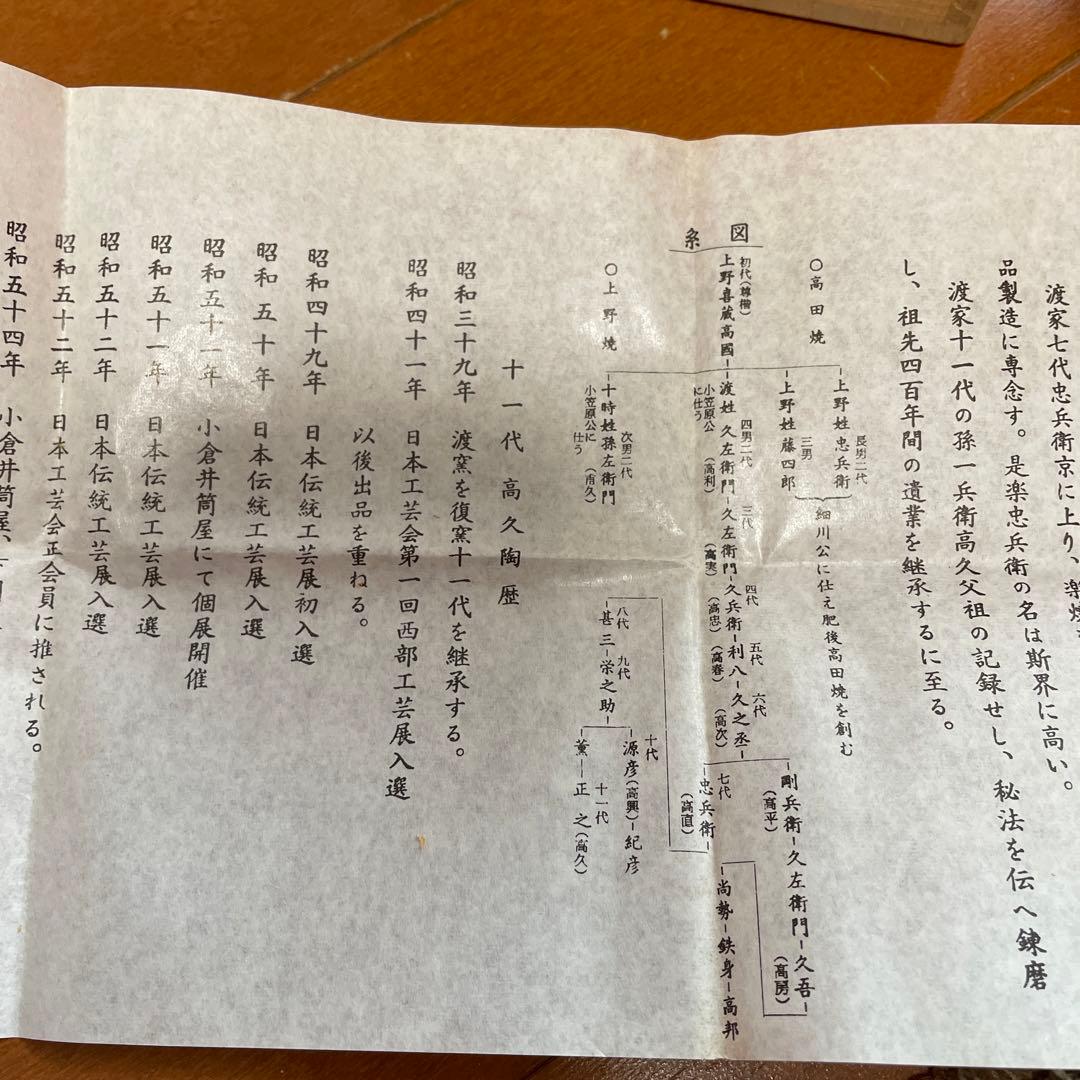 渡家七代忠兵衛京に上り、楽焼
品製造に専念す。是楽忠兵衛の名は斯界に高い。
渡家十一代の孫一兵衛高久父祖の記録せし、秘法を伝へ錬磨
し、祖先四百年間の遺業を継承するに至る。
系図
〇高田焼
長男二代
上野姓忠兵衛
三男
上野姓藤四郎
細川公に仕え肥後高田焼を創む
初代(尊楷)
上野喜蔵高國
四男二代
渡姓 久左衛門(高利)
小笠原公に仕う
三代
久左衛門(高実)
四代
久兵衛(高忠)
五代
利八(高春)
六代
久之丞(高次)
剛兵衛(高平)
久左衛門
久吾(高房)
尚勢
鉄身
高邦
七代
忠兵衛(高直)
八代
甚三
九代
栄之助
十代
源彦(高興)
紀彦
薫
十一代
正之(高久)
〇上野焼
次男二代
十時姓孫左衛門(甫久)
小笠原公に仕う
十一代高久陶歴
昭和三十九年 渡窯を復窯十一代を継承する。
昭和四十一年 日本工芸会第一回西部工芸展入選
以後出品を重ねる。
昭和四十九年 日本伝統工芸展初入選
昭和五十年 日本伝統工芸展入選
昭和五十一年 小倉井筒屋にて個展開催
昭和五十一年 日本伝統工芸展入選
昭和五十二年 日本伝統工芸展入選
昭和五十二年 日本工芸会正会員に推される。
昭和五十四年 小倉井筒屋、